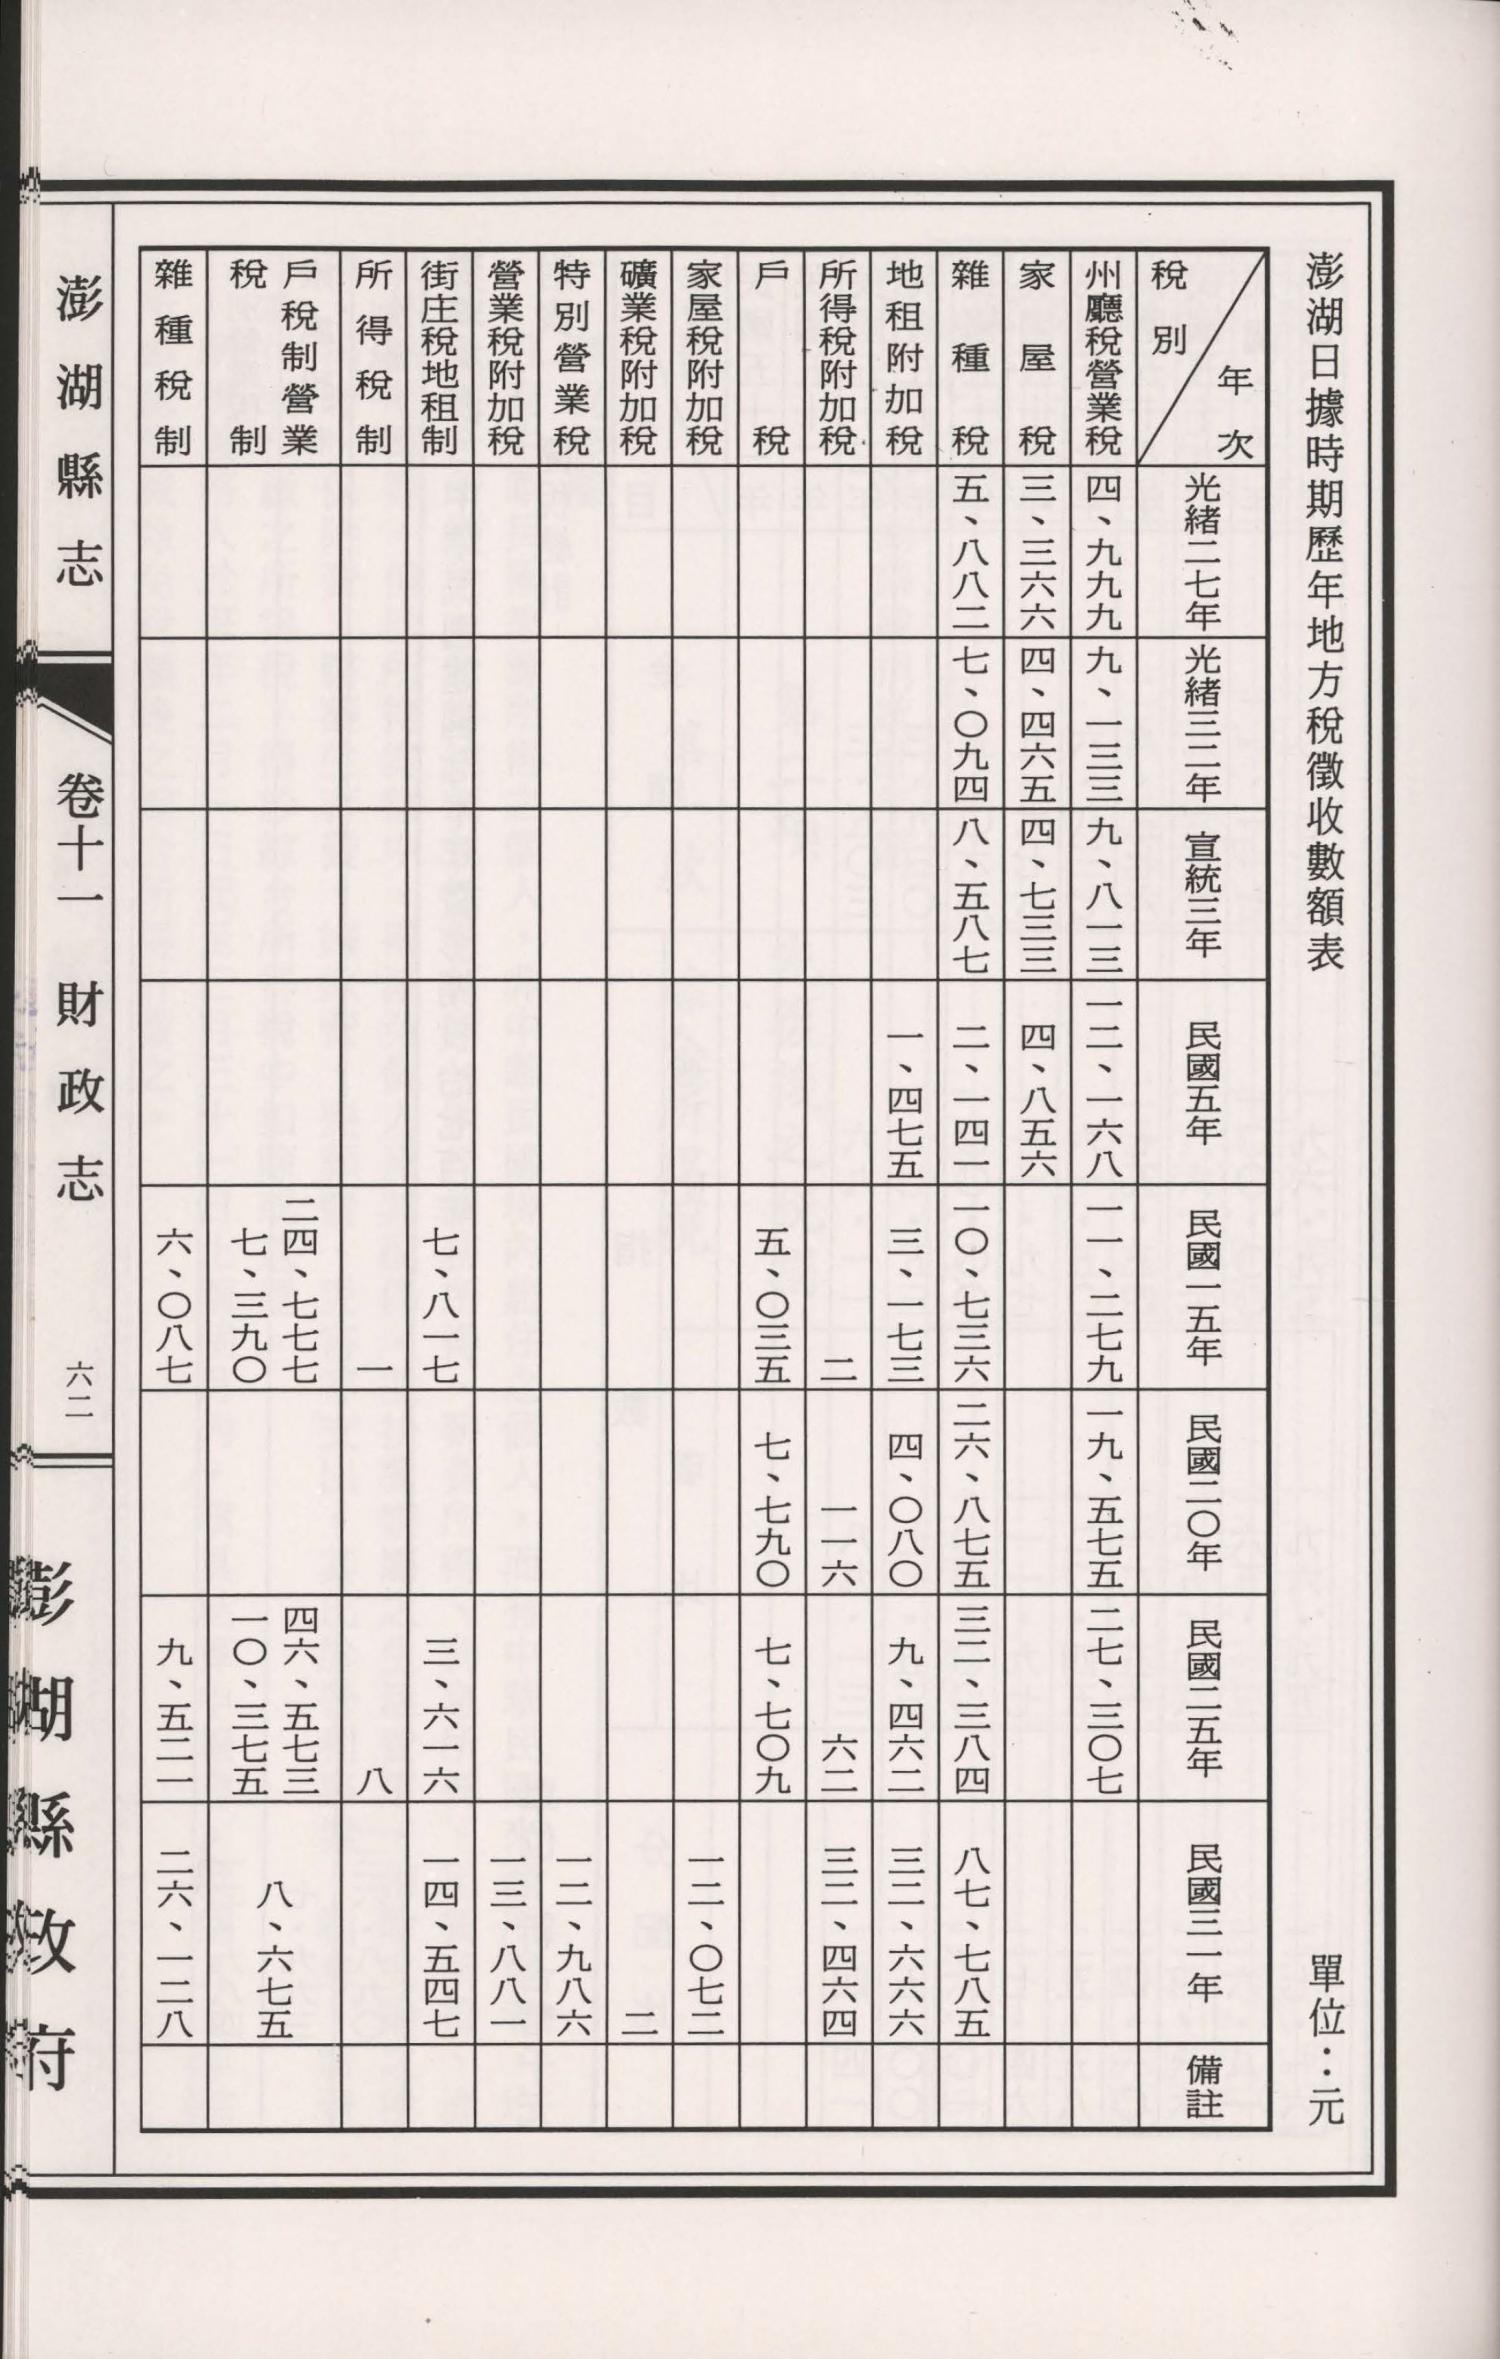 澎湖日據時期歷年地方稅徵收數額表
單位：元
年次
稅別
光緒二七年
光緒三二年
宣統三年
民國五年
民國一五年
民國二〇年
民國二五年
民國三一年
備註
州廳稅營業稅
四、九九九
九、一三三
九、八一三
一二、一六八
一一、二七九
一九、五七五
二七、三〇七
家屋稅
三、三六六
四、四六五
四、七三三
四、八五六
雜種稅
五、八八二
七、〇九四
八、五八七
二、一四一
一〇、七三六
二六、八七五
三二、三八四
八七、七八五
地租附加稅
一、四七五
三、一七三
四、〇八〇
九、四六二
三二、六六六
所得稅附加稅
二
一一六
六二
三二、四六四
戶稅
五、〇三五
七、七九〇
七、七〇九
家屋稅附加稅
一二、〇七二
礦業稅附加稅
二
特別營業稅
一二、九八六
營業稅附加稅
一三、八八一
街庄稅地租制
七、八一七
三、六一六
一四、五四七
所得稅制
一
八
戶稅制營業
稅制
二四、七七七
七、三九〇
四六、五七三
一〇、三七五
八、六七五
雜種稅制
六、〇八七
九、五二一
二六、一二八
澎湖縣志
卷十一 財政志
六二
澎湖縣政府